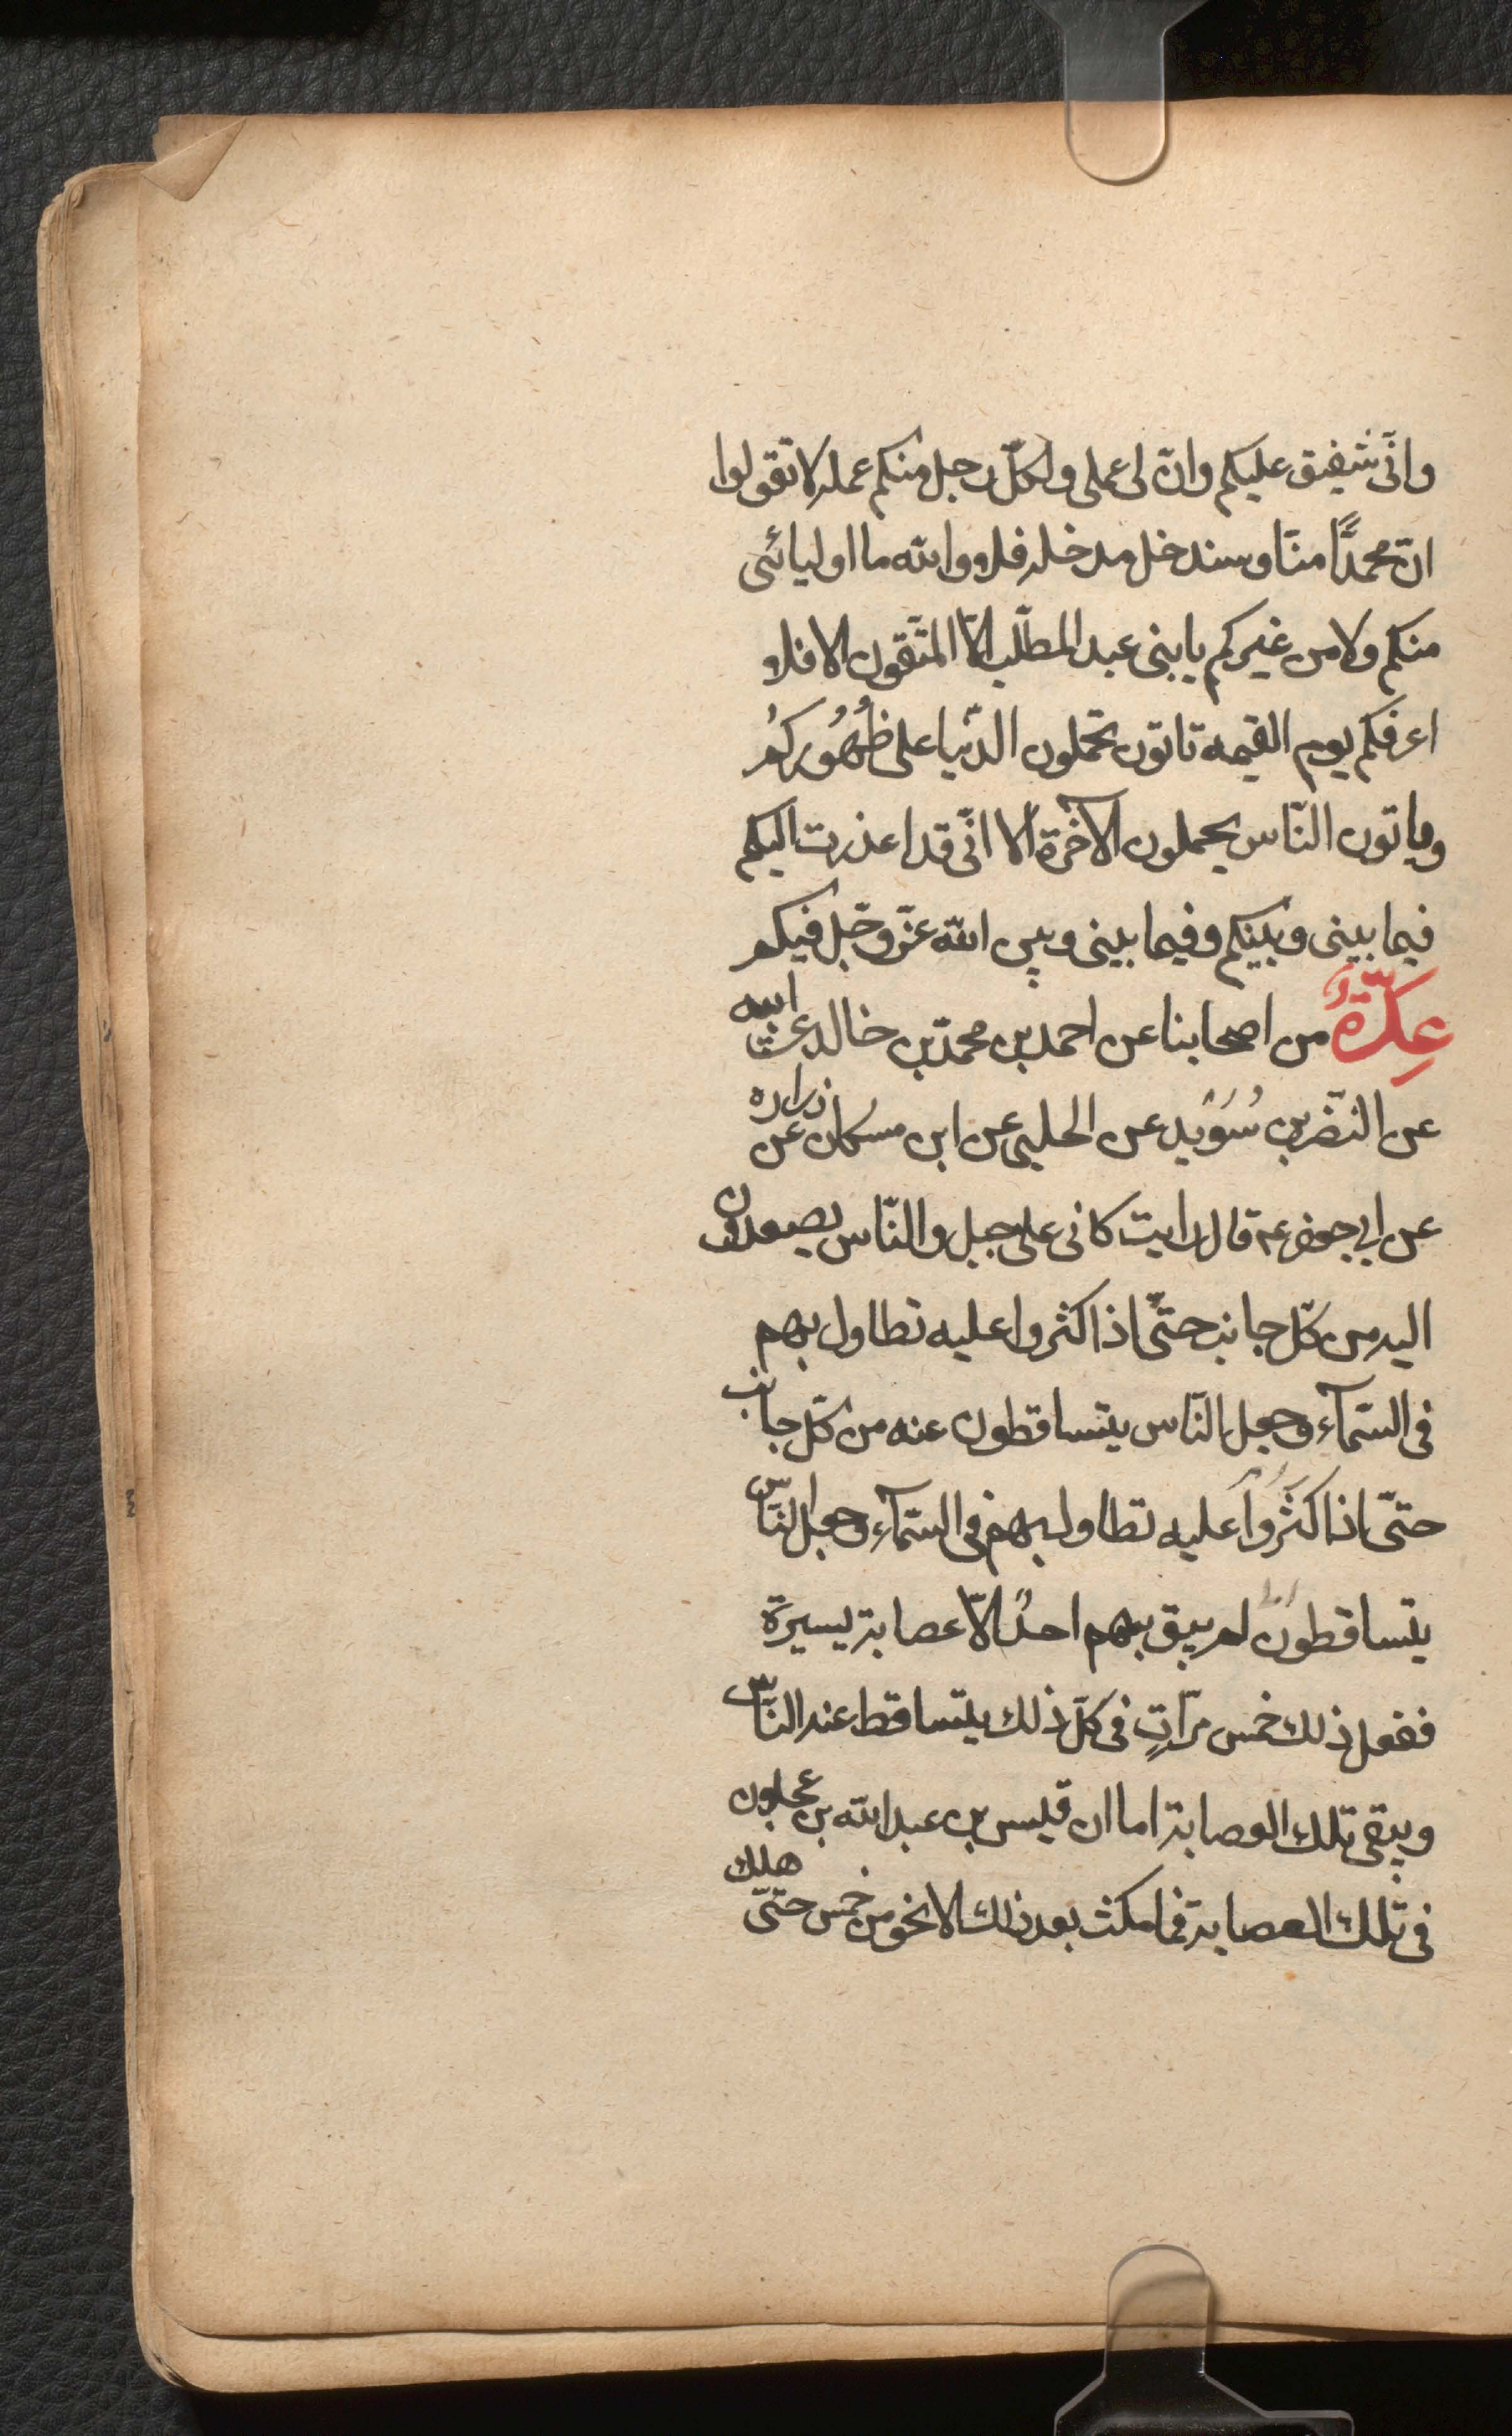 وانّى شفيق عليكم وانّ لى عملى ولكلّ رجل منكم عمله لا تقولوا
انّ محمدًّا منّا وسندخل مدخله فلا والله ما اوليائى
منكم ولا من غيركم يا بنى عبد المطلّب الّا المتّقون الا فلا
اعرفكم يوم القيمه تاتون تحملون الدّنيا على ظُهُوركُم
وياتون النّاس يحملون الآخرة الا انّى قد اعذرت اليكم
فيما بينى وبينكم وفيما بينى وبين الله عزّ وجّل فيكم
عِدّةٌ من اصحابنا عن احمد بن محمّد بن خالد عن ابيه
عن النّضر بن سُوَيد عن الحلبى عن ابن مسكان عن زراره
عن ابى جعفر عم قال رايت كانى على جبل والنّاس يصعدون
اليه من كلّ جانب حتّى اذا كثروا عليه تطاول بهم
فى السّمآء وجعل النّاس يتساقطون عنه من كلّ جانب
حتّى اذا كَثُرُوا عليه تطاول بهم فى السّمآء وجعل النّاس
يتساقطون لم يبق بهم احدٌ الّا عصابة يسيرة
ففعل ذلك خمس مرّاتٍ فى كلّ ذلك يتساقط عنه النّاس
ويبقى تلك العصابة اما ان قيس بن عبد الله بن عجلون
فى تلك العصابة فما مكث بعد ذلك الا نحو من خمس حتّى هلك